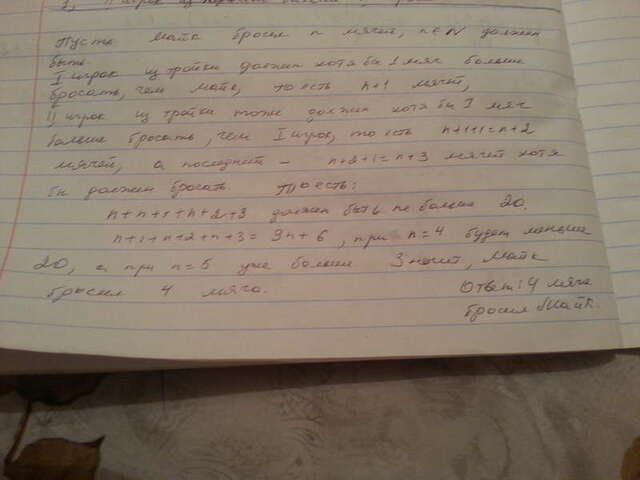 Пусть Майк бросил n мячей, n ∈ N должен
быть.
I игрок из тройки должен хотя бы 1 мяч больше
бросать, чем Майк, то есть n+1 мячей,
II игрок из тройки тоже должен хотя бы 1 мяч
больше бросать, чем I игрок, то есть n+1+1=n+2
мячей, а последний - n+2+1=n+3 мячей хотя
бы должен бросать. То есть:
n+n+1+n+2+3 должен быть не больше 20.
n+1+n+2+n+3=3n+6, при n=4 будет меньше
20, а при n=5 уже больше. Значит, Майк
бросил 4 мяча.
Ответ: 4 мяча
бросил Майк.